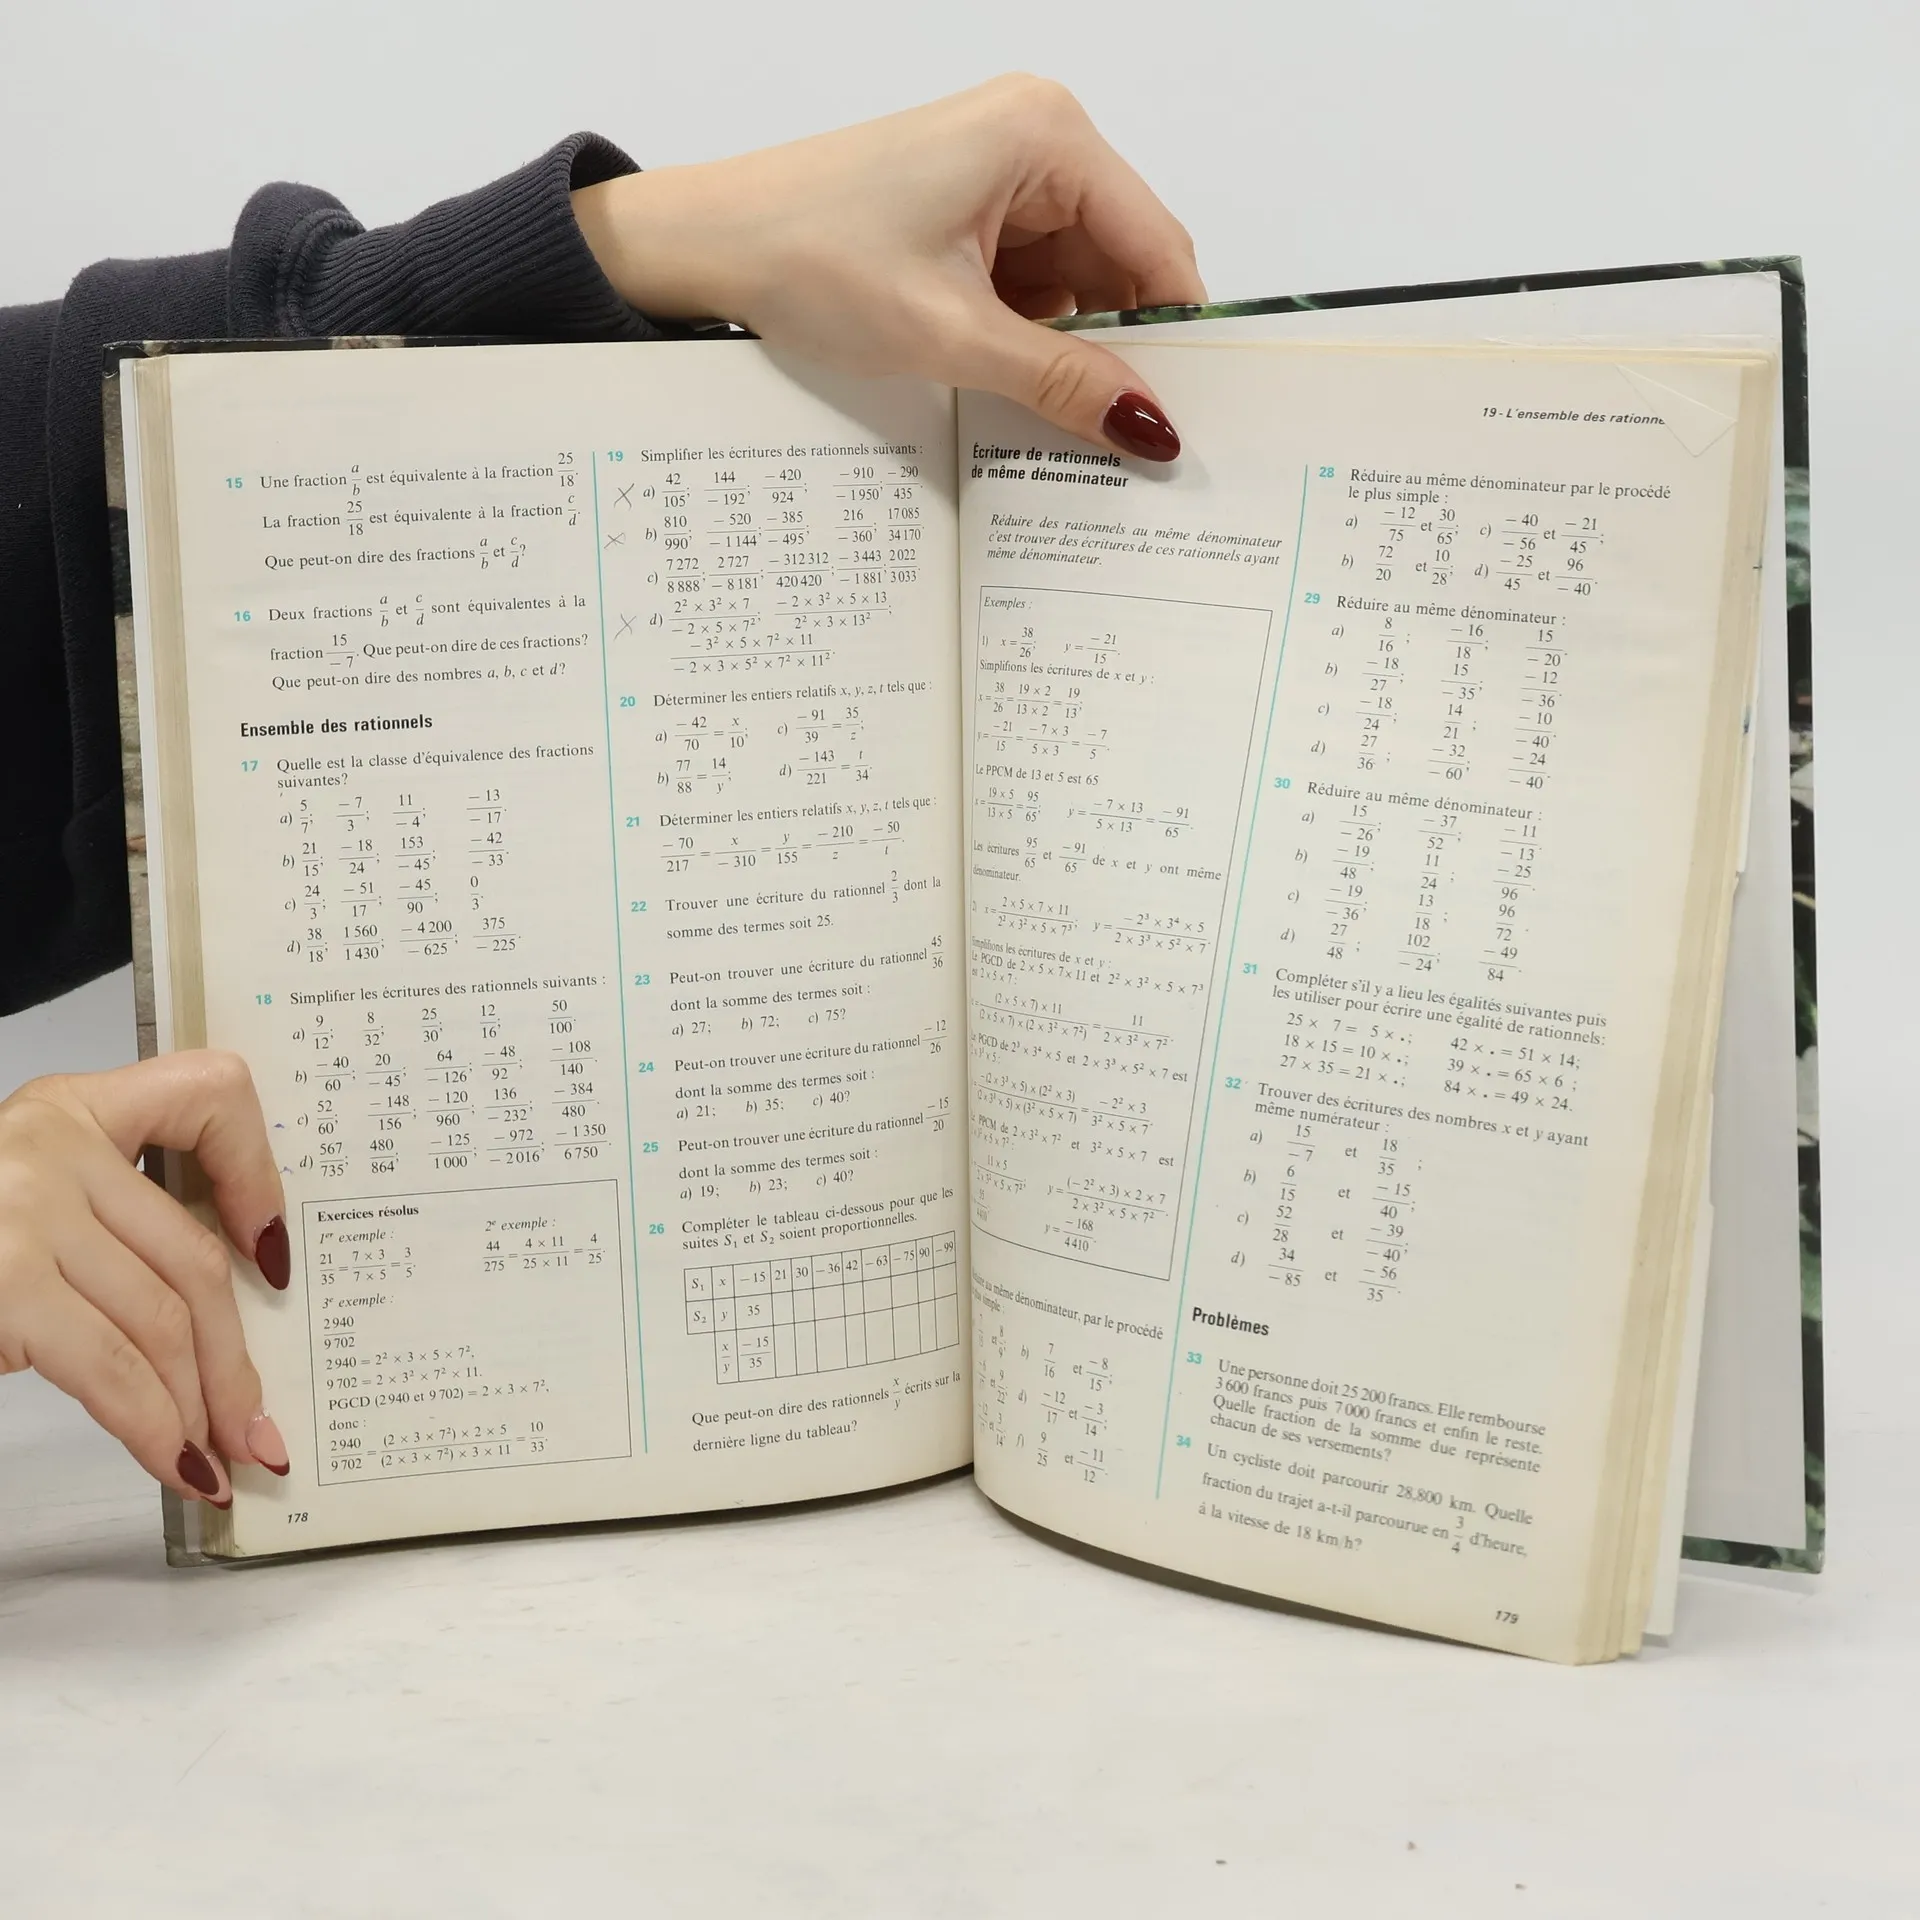 15 Une fraction a/b est équivalente à la fraction 25/18.
La fraction 25/18 est équivalente à la fraction c/d.
Que peut-on dire des fractions a/b et c/d?
16 Deux fractions a/b et c/d sont équivalentes à la
fraction 15/-7. Que peut-on dire de ces fractions?
Que peut-on dire des nombres a, b, c et d?
Ensemble des rationnels
17 Quelle est la classe d'équivalence des fractions
suivantes?
a) 5/7; -7/3; 11/-4; -13/-17.
b) 21/15; -18/24; 153/-45; -42/-33.
c) 24/3; -51/17; -45/90; 0/3.
d) 38/18; 1560/1430; -4200/-625; 375/-225.
18 Simplifier les écritures des rationnels suivants :
a) 9/12; 8/32; 25/30; 12/16; 50/100.
b) -40/60; 20/-45; 64/-126; -48/92; -108/140.
c) 52/60; -148/156; -120/960; 136/-232; -384/480.
d) 567/735; 480/864; -125/1000; -972/-2016; -1350/6750.
Exercices résolus
1er exemple :
21/35 = 7 × 3/7 × 5 = 3/5.
2e exemple :
44/275 = 4 × 11/25 × 11 = 4/25.
3e exemple :
2940/9702
2940 = 2² × 3 × 5 × 7²,
9702 = 2 × 3² × 7² × 11.
PGCD (2940 et 9702) = 2 × 3 × 7²,
donc :
2940/9702 = (2 × 3 × 7²) × 2 × 5/(2 × 3 × 7²) × 3 × 11 = 10/33.
178
19 Simplifier les écritures des rationnels suivants :
a) 42/105; 144/-192; -420/924; -910/-1950; -290/435.
b) 810/990; -520/-1144; -385/-495; 216/-360; 17085/34170.
c) 7272/8888; 2727/-8181; -312312/420420; -3443/-1881; 2022/3033.
d) 2² × 3² × 7/-2 × 5 × 7²; -2 × 3² × 5 × 13/2² × 3 × 13²;
-3² × 5 × 7² × 11/-2 × 3 × 5² × 7² × 11².
20 Déterminer les entiers relatifs x, y, z, t tels que :
a) -42/70 = x/10; c) -91/39 = 35/z;
b) 77/88 = 14/y; d) -143/221 = t/34.
21 Déterminer les entiers relatifs x, y, z, t tels que :
-70/217 = x/-310 = y/155 = -210/z = -50/t.
22 Trouver une écriture du rationnel 2/3 dont la
somme des termes soit 25.
23 Peut-on trouver une écriture du rationnel 45/36
dont la somme des termes soit :
a) 27; b) 72; c) 75?
24 Peut-on trouver une écriture du rationnel -12/26
dont la somme des termes soit :
a) 21; b) 35; c) 40?
25 Peut-on trouver une écriture du rationnel -15/20
dont la somme des termes soit :
a) 19; b) 23; c) 40?
26 Compléter le tableau ci-dessous pour que les
suites S₁ et S₂ soient proportionnelles.
S₁ x -15 21 30 -36 42 -63 -75 90 -99
S₂ y 35
x/y -15/35
Que peut-on dire des rationnels x/y écrits sur la
dernière ligne du tableau?
19 - L'ensemble des
Écriture de rationnels
de même dénominateur
Réduire des rationnels au même dénominateur
c'est trouver des écritures de ces rationnels ayant
même dénominateur.
Exemples :
1) x = 38/26; y = -21/15.
Simplifions les écritures de x et y :
x = 38/26 = 19 × 2/13 × 2 = 19/13;
y = -21/15 = -7 × 3/5 × 3 = -7/5.
Le PPCM de 13 et 5 est 65
x = 19 × 5/13 × 5 = 95/65; y = -7 × 13/5 × 13 = -91/65.
Les écritures 95/65 et -91/65 de x et y ont même
dénominateur.
x = 2 × 5 × 7 × 11/2² × 3² × 5 × 7³; y = -2³ × 3⁴ × 5/2 × 3³ × 5² × 7.
Simplifions les écritures de x et y :
Le PGCD de 2 × 5 × 7 × 11 et 2² × 3² × 5 × 7³
est 2 × 5 × 7 :
(2 × 5 × 7) × 11/(2 × 5 × 7) × (2 × 3² × 7²) = 11/2 × 3² × 7².
PGCD de 2³ × 3⁴ × 5 et 2 × 3³ × 5² × 7 est
-(2 × 3³ × 5) × (2² × 3)/(2 × 3³ × 5) × (5 × 7) = -2² × 3
PPCM de 2 × 3² × 7² et 3² × 5 × 7 est
11 × 5 y = (-2² × 3) × 2 × 7/2 × 3² × 5 × 7².
y = -168/4410.
même dénominateur, par le procédé
simple :
b) 7/16 et -8/15;
d) -12/17 et -3/14;
f) 9/25 et -11/12.
28 Réduire au même dénominateur par le procédé
le plus simple :
a) -12/75 et 30/65; c) -40/-56 et -21/45;
b) 72/20 et 10/28; d) -25/45 et 96/-40.
29 Réduire au même dénominateur :
a) 8/16; -16/18; 15/-20.
b) -18/27; 15/-35; -12/-36.
c) -18/24; 14/21; -10/-40.
d) 27/36; -32/-60; -24/-40.
30 Réduire au même dénominateur :
a) 15/-26; -37/52; -11/-13.
b) -19/48; 11/24; -25/96.
c) -19/-36; 13/18; 96/72.
d) 27/48; 102/-24; -49/84.
31 Compléter s'il y a lieu les égalités suivantes puis
les utiliser pour écrire une égalité de rationnels:
25 × 7 = 5 × .; 42 × . = 51 × 14;
18 × 15 = 10 × .; 39 × . = 65 × 6 ;
27 × 35 = 21 × .; 84 × . = 49 × 24.
32 Trouver des écritures des nombres x et y ayant
même numérateur :
a) 15/-7 et 18/35;
b) 6/15 et -15/40;
c) 52/28 et -39/-40;
d) 34/-85 et -56/35.
Problèmes
33 Une personne doit 25 200 francs. Elle rembourse
3 600 francs puis 7 000 francs et enfin le reste.
Quelle fraction de la somme due représente
chacun de ses versements?
34 Un cycliste doit parcourir 28,800 km. Quelle
fraction du trajet a-t-il parcourue en 3/4 d'heure,
à la vitesse de 18 km/h?
179